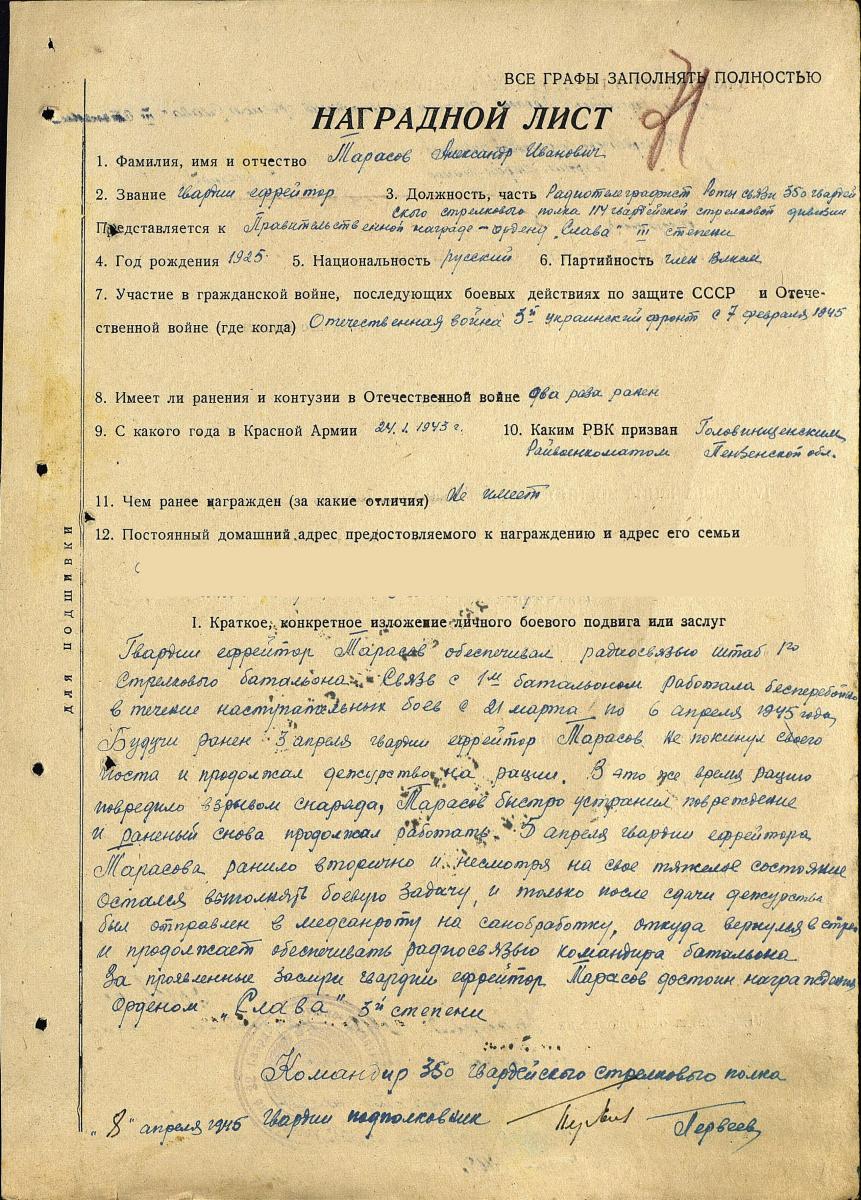 ВСЕ ГРАФЫ ЗАПОЛНЯТЬ ПОЛНОСТЬЮ
НАГРАДНОЙ ЛИСТ
1. Фамилия, имя и отчество Тарасов Александр Иванович
2. Звание Гвардии ефрейтор 3. Должность, часть Радиотелеграфист Роты связи 350 гвардей
ского стрелкового полка 114 гвардейской стрелковой дивизии
Представляется к Правительственной награде – ордену „Слава" III степени
4. Год рождения 1925. 5. Национальность русский 6. Партийность член ВЛКСМ
7. Участие в гражданской войне, последующих боевых действиях по защите СССР и Отече-
ственной войне (где когда) Отечественная война 3й украинский фронт с 7 февраля 1945
8. Имеет ли ранения и контузии в Отечественной войне два раза ранен
9. С какого года в Красной Армии 24.1.1943 г. 10. Каким РВК призван Головинщенским
Райвоенкоматом Пензенской обл.
11. Чем ранее награжден (за какие отличия) Не имеет
12. Постоянный домашний адрес предостовляемого к награждению и адрес его семьи
ДЛЯ ПОДШИВКИ
I. Краткое, конкретное изложение личного боевого подвига или заслуг
Гвардии ефрейтор Тарасов обеспечивал радиосвязью штаб 1го
стрелкового батальона. Связь с 1м батальоном работала бесперебойно
в течение наступательных боев с 21 марта по 6 апреля 1945 года,
Будучи ранен 3 апреля гвардии ефрейтор Тарасов не покинул своего
поста и продолжал дежурство на рации. В это же время рацию
повредило взрывом снаряда, Тарасов быстро устранил повреждение
и раненый снова продолжал работать. 5 апреля гвардии ефрейтора
Тарасова ранило вторично и несмотря на свое тяжелое состояние
остался выполнять боевую задачу, и только после сдачи дежурства
был отправлен в медсанроту на санобработку, откуда вернулся в строй
и продолжает обеспечивать радиосвязью командира батальона
За проявленные заслуги гвардии ефрейтор Тарасов достоин награждения
Орденом „Слава" 3й степени
Командир 350 гвардейского стрелкового полка
„8" апреля 1945 гвардии подполковник Первеев